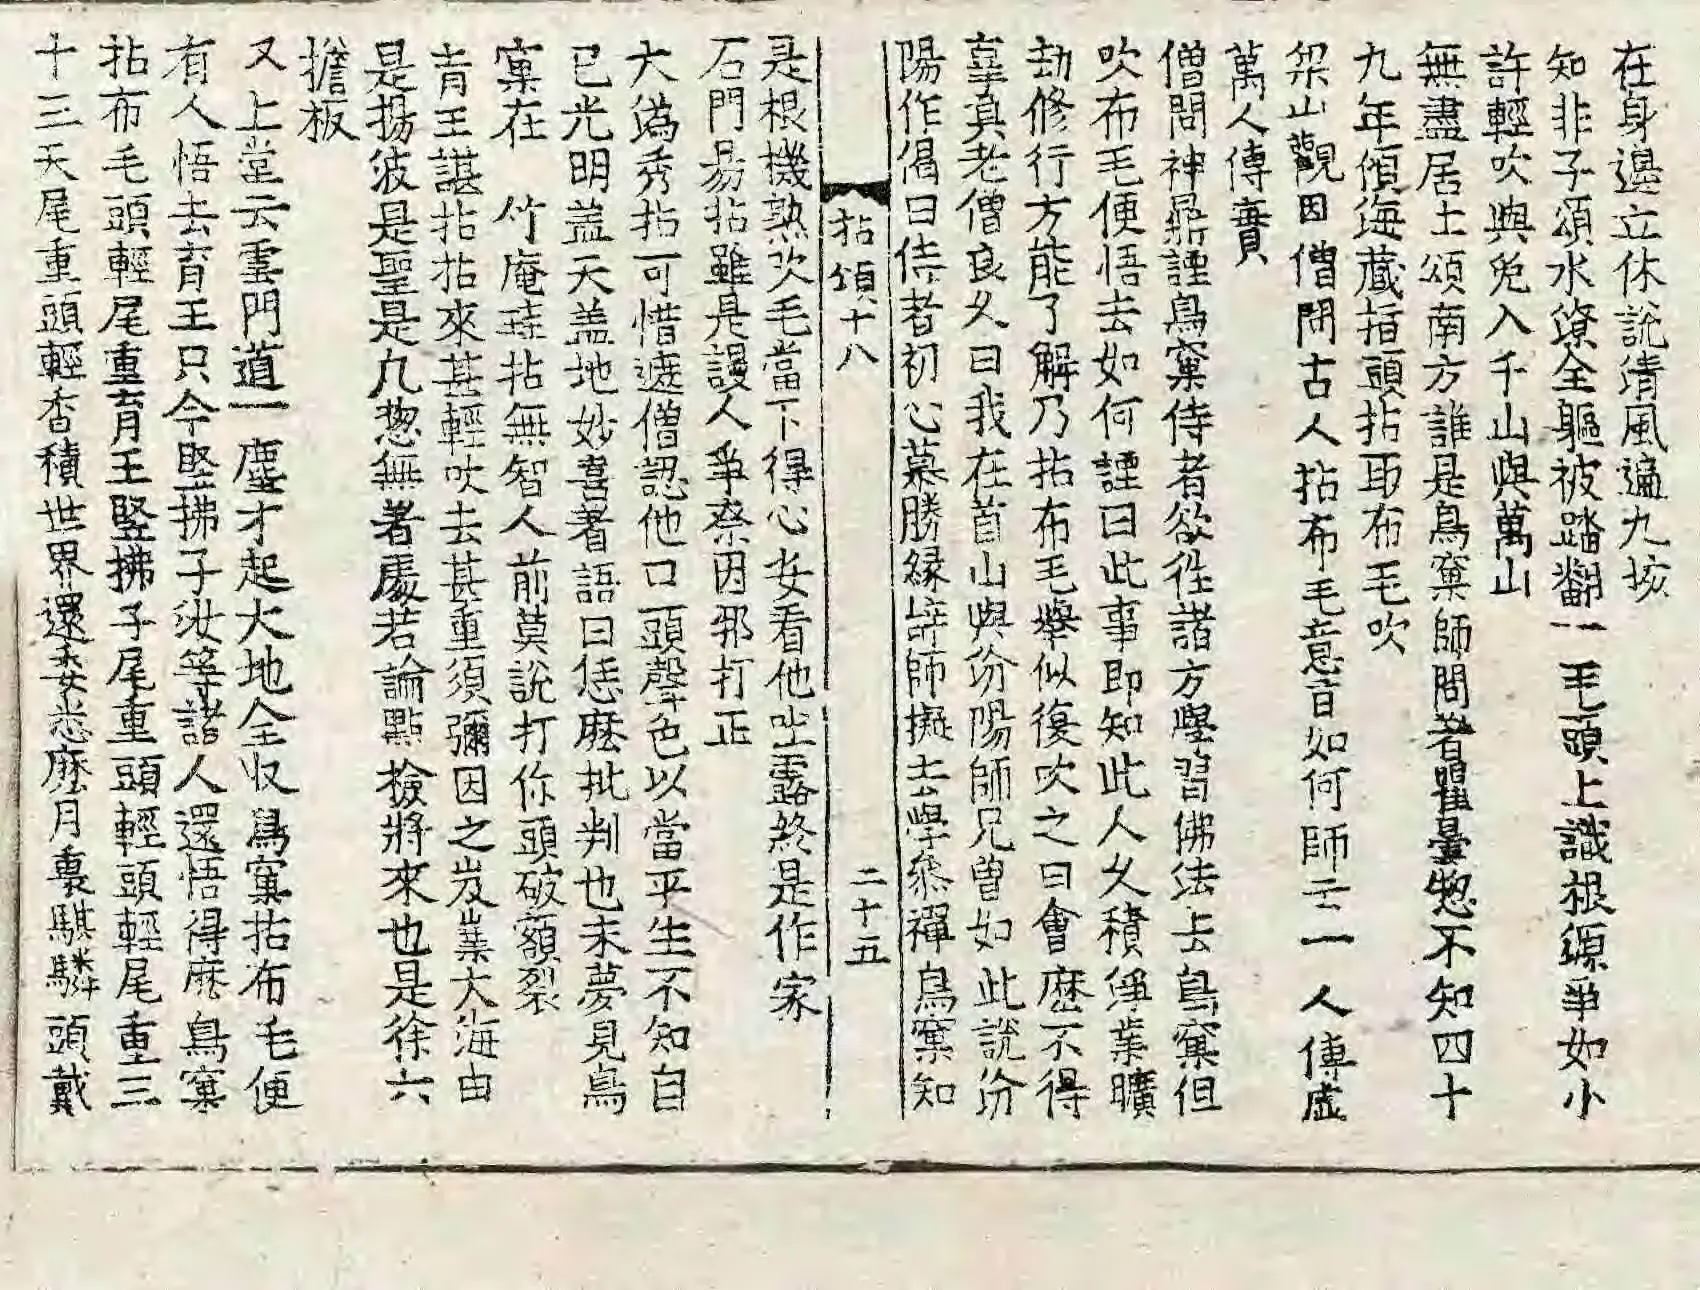 在身邊立休說淸風遍九垓
知非子頌水潦全軀被踏翻一毛頭上識根源爭如小
許輕吹與兎入千山與萬山
無盡居士頌南方誰是鳥窠師問著瞿曇惣不知四十
九年傾海藏指頭拈耴布毛吹
梁山觀因僧問古人拈布毛意旨如何師云一人傳虛
萬人傳實
僧問神鼎諲鳥窠侍者欲徃諸方學習佛法去鳥窠但
吹布毛便悟去如何諲曰此事即知此人久積淨業曠
劫修行方能了解乃拈布毛擧似復吹之曰會麽不得
辜負老僧良久曰我在首山與汾陽師兄曽如此說汾
陽作偈曰侍者初心慕勝緣辝師擬去學叅禪鳥窠知
拈頌十八　二十五
是根機熟吹毛當下得心安看他吐露終是作家
石門易拈雖是謾人爭柰因邪打正
大潙秀拈可惜遮僧認他口頭聲色以當平生不知自
已光明盖天盖地妙喜著語曰恁麽批判也未夢見鳥
窠在　竹庵珪拈無智人前莫說打你頭破額裂
育王諶拈拈來甚輕吹去甚重須彌因之岌嶪大海由
是揚波是聖是凡惣無著處若論點撿將來也是徐六
擔板
又上堂云雲門道一塵才起大地全収鳥窠拈布毛便
有人悟去育王只今竪拂子汝等諸人還悟得麽鳥窠
拈布毛頭輕尾重育王竪拂子尾重頭輕頭輕尾重三
十三天尾重頭輕香積世界還委悉麽月裏騏驎頭戴